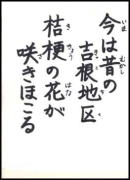 今は昔の
吉根地区
桔梗の花が
咲きほこる